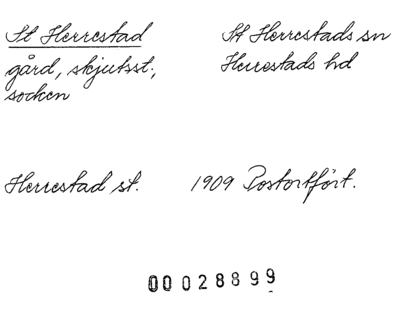 St Herrestad
gård, skjutsst.,
socken
St Herrestads sn
Herrestads hd
Herrestad st.
1909 Postortfört.
00 028899